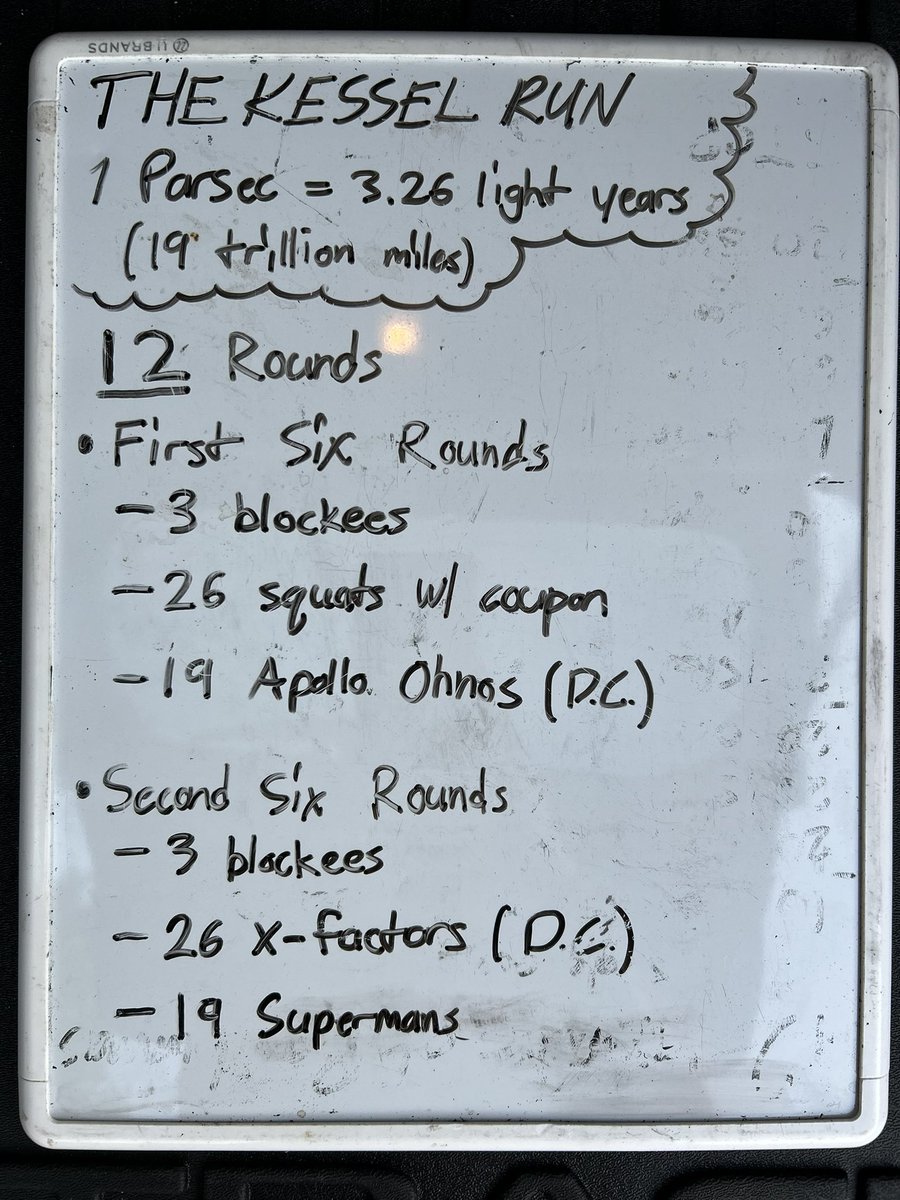 U BRANDS
THE KESSEL RUN
1 Parsec = 3.26 light years
(19 trillion miles)
12 Rounds
• First Six Rounds
- 3 blockees
- 26 squats w/ coupon
- 19 Apollo Ohnos (D.C.)
• Second Six Rounds
- 3 blockees
- 26 x-factors (D.C.)
- 19 Supermans